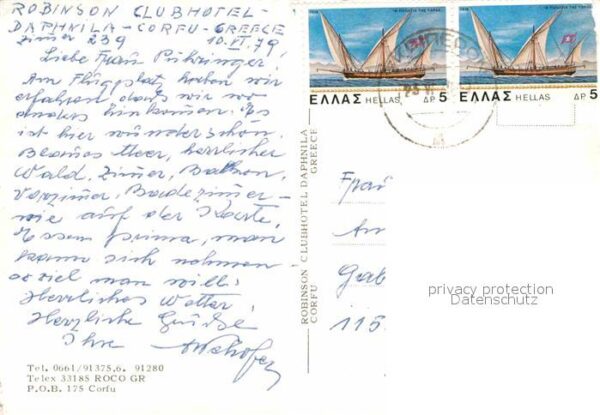 ROBINSON CLUBHOTEL-
DAPHNILA - CORFU - GREECE
Zimer 239 10.VI.79!
Liebe Frau Pühringer!
Am Flugplat haben wir
erfahren, dass wir wo
anders hinkomen. Es
ist hier wunderschön.
Blaues Meer, herrlicher
Wald, Zimer, Balkon,
Vorzimer, Badezimer -
wie auf der Karte,
Essen prima, man
kann sich nehmen
soviel man will!
Herrliches Wetter!
Herzliche Grüsse
Ihre
Tel. 0661/91375,6. 91280
Telex 33185 ROCO GR
P.O.B. 175 Corfu
ROBINSON CLUBHOTEL DAPHNILA
CORFU GREECE
ΕΛΛΑΣ HELLAS ΔΡ 5
ΕΛΛΑΣ HELLAS ΔΡ 5
Frau
Am
Gab
115
privacy protection
Datenschutz